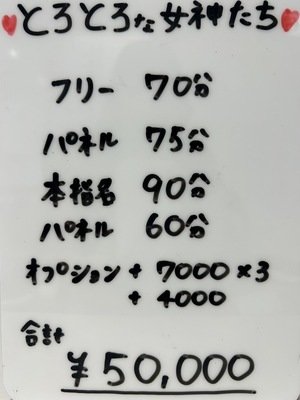 ♥とろとろな女神たち♥
フリー 70分
パネル 75分
本指名 90分
パネル 60分
オプション + 7000×3
+ 4000
合計
¥50,000